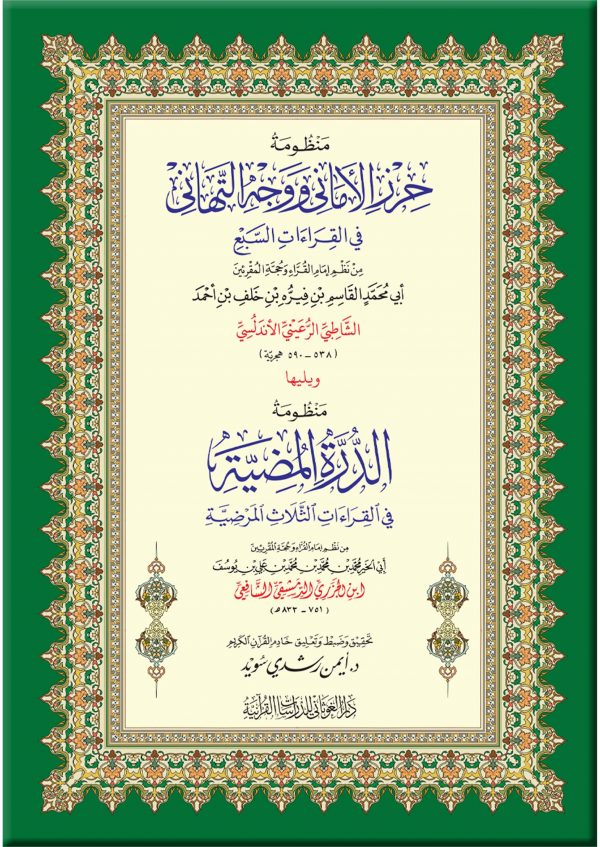 مَنْظُومَةُ
حِرْزِ الأَمَانِي وَوَجْهِ التَّهَانِي
فِي القِرَاءَاتِ السَّبْعِ
مِنْ نَظْمِ إِمَامِ القُرَّاءِ وَحُجَّةِ المُقْرِئِينَ
أَبِي مُحَمَّدٍ القَاسِمِ بْنِ فِيرُّه بْنِ خَلَفِ بْنِ أَحْمَدَ
الشَّاطِبِيِّ الرُّعَيْنِيِّ الأَنْدَلُسِيِّ
(٥٣٨ - ٥٩٠ هجرية)
ويليها
مَنْظُومَةُ
الدُّرَّةِ المُضِيَّةِ
فِي القِرَاءَاتِ الثَّلَاثِ المَرْضِيَّةِ
مِنْ نَظْمِ إِمَامِ القُرَّاءِ وَحُجَّةِ المُقْرِئِينَ
أَبِي الخَيْرِ مُحَمَّدِ بْنِ مُحَمَّدِ بْنِ مُحَمَّدِ بْنِ عَلِيِّ بْنِ يُوسُفَ
ابْنِ الجَزَرِيِّ الدِّمَشْقِيِّ الشَّافِعِيِّ
(٧٥١ - ٨٣٣ هـ)
تَحْقِيقُ وَضَبْطُ وَتَعْلِيقُ خَادِمِ القُرْآنِ الكَرِيمِ
د. أيمن رشدي سُوَيْد
دَارُ الغَوْثَانِي لِلدِّرَاسَاتِ القُرْآنِيَّةِ